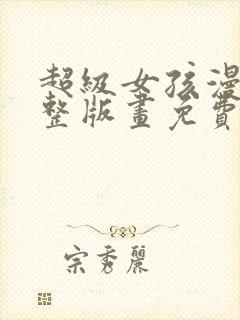 超級女孩漫
整版畫免費
宗秀麗